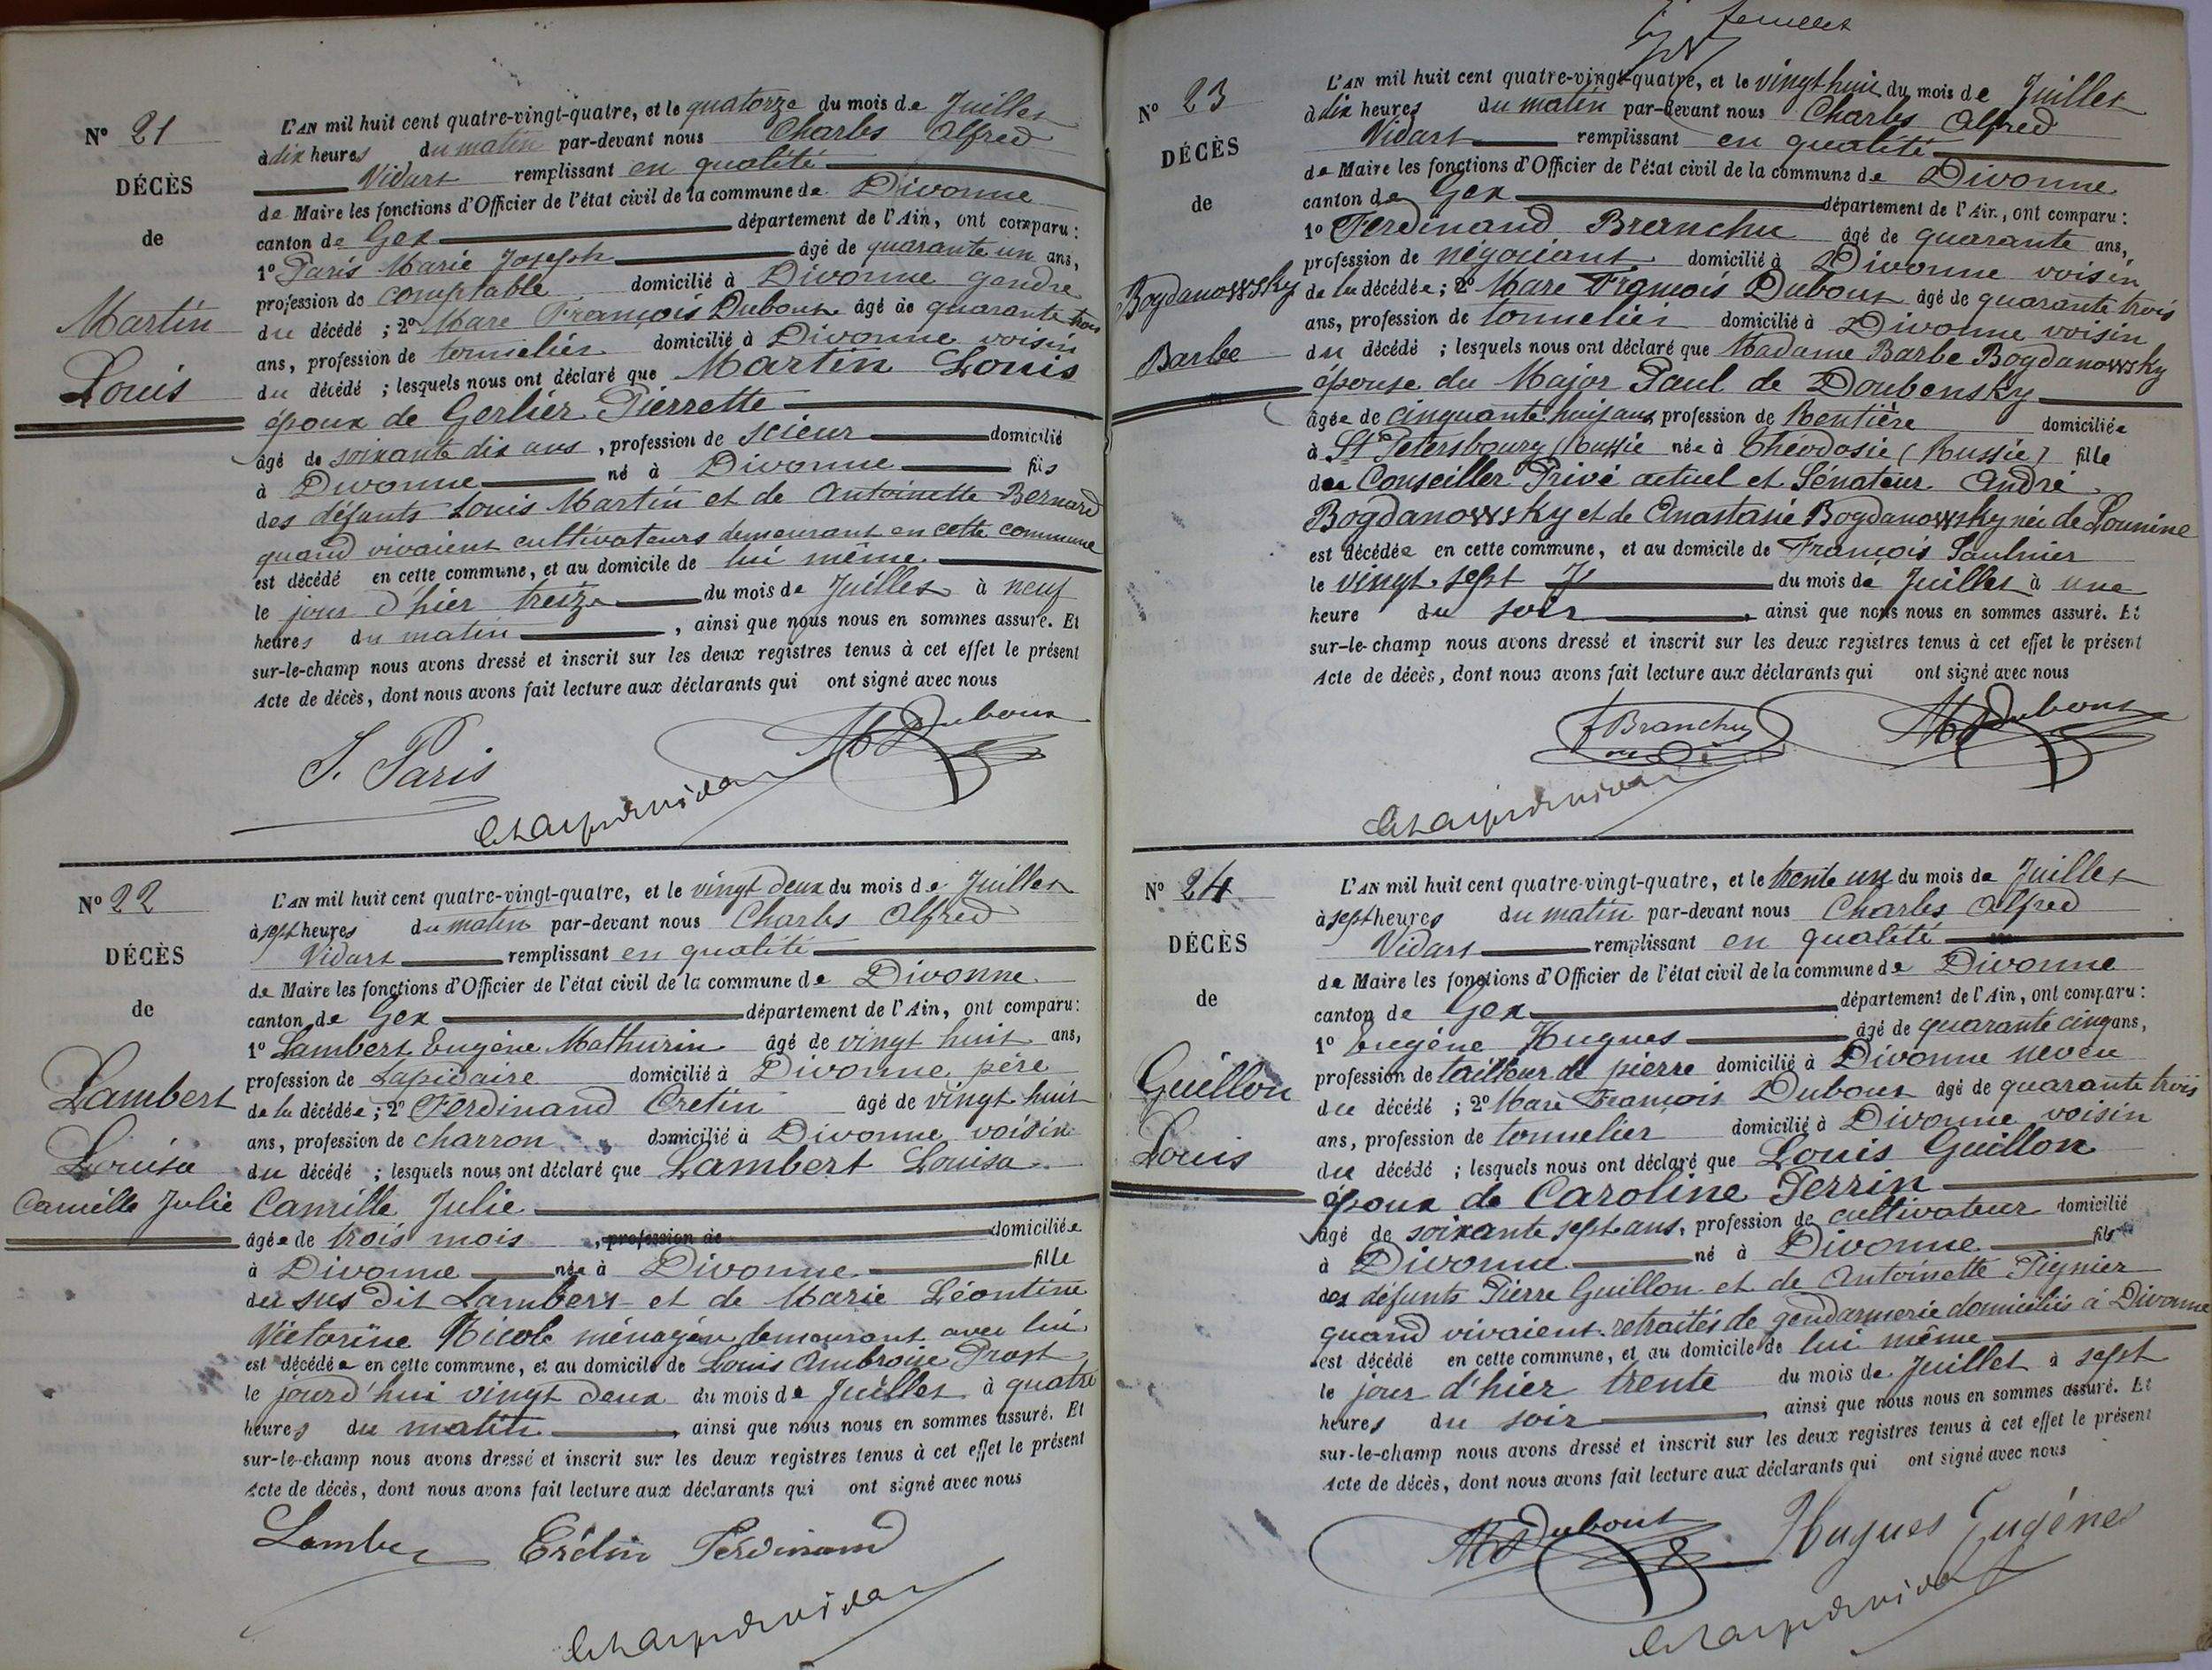 N° 21
DÉCÈS
de
Martin
Louis
L'AN mil huit cent quatre-vingt-quatre, et le quatorze du mois de Juillet
à dix heures du matin par-devant nous Charles Alfred
Vidart remplissant en qualité
de Maire les fonctions d'Officier de l'état civil de la commune de Divonne
canton de Gex département de l'Ain, ont comparu :
1° Paris Marie Joseph âgé de quarante un ans,
profession de comptable domicilié à Divonne gendre
du décédé ; 2° Marc François Duboux âgé de quarante trois
ans, profession de tonnelier domicilié à Divonne voisin
du décédé ; lesquels nous ont déclaré que Martin Louis
époux de Gerlier Pierrette
âgé de soixante dix ans, profession de scieur domicilié
à Divonne né à Divonne fils
des défunts Louis Martin et de Antoinette Bernard
quand vivaient cultivateurs demeurant en cette commune
est décédé en cette commune, et au domicile de lui même
le jour d'hier treize du mois de Juillet à neuf
heures du matin, ainsi que nous nous en sommes assuré. Et
sur-le-champ nous avons dressé et inscrit sur les deux registres tenus à cet effet le présent
Acte de décès, dont nous avons fait lecture aux déclarants qui ont signé avec nous
J. Paris MF Duboux
N° 22
DÉCÈS
de
Lambert
Louisa
Camille Julie
L'AN mil huit cent quatre-vingt-quatre, et le vingt deux du mois de Juillet
à sept heures du matin par-devant nous Charles Alfred
Vidart remplissant en qualité
de Maire les fonctions d'Officier de l'état civil de la commune de Divonne
canton de Gex département de l'Ain, ont comparu :
1° Lambert Eugène Mathurin âgé de vingt huit ans,
profession de Lapidaire domicilié à Divonne père
de la décédée ; 2° Ferdinand Cretin âgé de vingt huit
ans, profession de charron domicilié à Divonne voisin
du décédé ; lesquels nous ont déclaré que Lambert Louisa
Camille Julie
âgée de trois mois, profession de domiciliée
à Divonne née à Divonne fille
du sus dit Lambert et de Marie Léontine
Victorine Nicole ménagère demeurant avec lui
est décédée en cette commune, et au domicile de Louis Ambroise Prost
le jourd'hui vingt deux du mois de Juillet à quatre
heures du matin, ainsi que nous nous en sommes assuré. Et
sur-le-champ nous avons dressé et inscrit sur les deux registres tenus à cet effet le présent
Acte de décès, dont nous avons fait lecture aux déclarants qui ont signé avec nous
Lambert Crétin Ferdinand
feuillet
N° 23
DÉCÈS
de
Bogdanowsky
Barbe
L'AN mil huit cent quatre-vingt-quatre, et le vingt huit du mois de Juillet
à dix heures du matin par-devant nous Charles Alfred
Vidart remplissant en qualité
de Maire les fonctions d'Officier de l'état civil de la commune de Divonne
canton de Gex département de l'Ain, ont comparu :
1° Ferdinand Branchu âgé de quarante ans,
profession de négociant domicilié à Divonne voisin
de la décédée ; 2° Marc François Duboux âgé de quarante trois
ans, profession de tonnelier domicilié à Divonne voisin
du décédé ; lesquels nous ont déclaré que Madame Barbe Bogdanowsky
épouse du Major Paul de Doubensky
âgée de cinquante huit ans, profession de Rentière domiciliée
à St Petersbourg (Russie née à Théodosie (Russie) fille
du Conseiller Privé actuel et Sénateur André
Bogdanowsky et de Anastasie Bogdanowsky née de Lounine
est décédée en cette commune, et au domicile de François Saulnier
le vingt sept du mois de Juillet à une
heure du soir, ainsi que nous nous en sommes assuré. Et
sur-le-champ nous avons dressé et inscrit sur les deux registres tenus à cet effet le présent
Acte de décès, dont nous avons fait lecture aux déclarants qui ont signé avec nous
f Branchu MF Duboux
N° 24
DÉCÈS
de
Guillon
Louis
L'AN mil huit cent quatre-vingt-quatre, et le trente un du mois de Juillet
à sept heures du matin par-devant nous Charles Alfred
Vidart remplissant en qualité
de Maire les fonctions d'Officier de l'état civil de la commune de Divonne
canton de Gex département de l'Ain, ont comparu :
1° Eugène Hugues âgé de quarante cinq ans,
profession de tailleur de pierre domicilié à Divonne neveu
du décédé ; 2° Marc François Duboux âgé de quarante trois
ans, profession de tonnelier domicilié à Divonne voisin
du décédé ; lesquels nous ont déclaré que Louis Guillon
époux de Caroline Perrin
âgé de soixante sept ans, profession de cultivateur domicilié
à Divonne né à Divonne fils
des défunts Pierre Guillon et de Antoinette Pignier
quand vivaient retraités de gendarmerie domiciliés à Divonne
est décédé en cette commune, et au domicile de lui même
le jour d'hier trente du mois de Juillet à sept
heures du soir, ainsi que nous nous en sommes assuré. Et
sur-le-champ nous avons dressé et inscrit sur les deux registres tenus à cet effet le présent
Acte de décès, dont nous avons fait lecture aux déclarants qui ont signé avec nous
MF Duboux Hugues Eugène